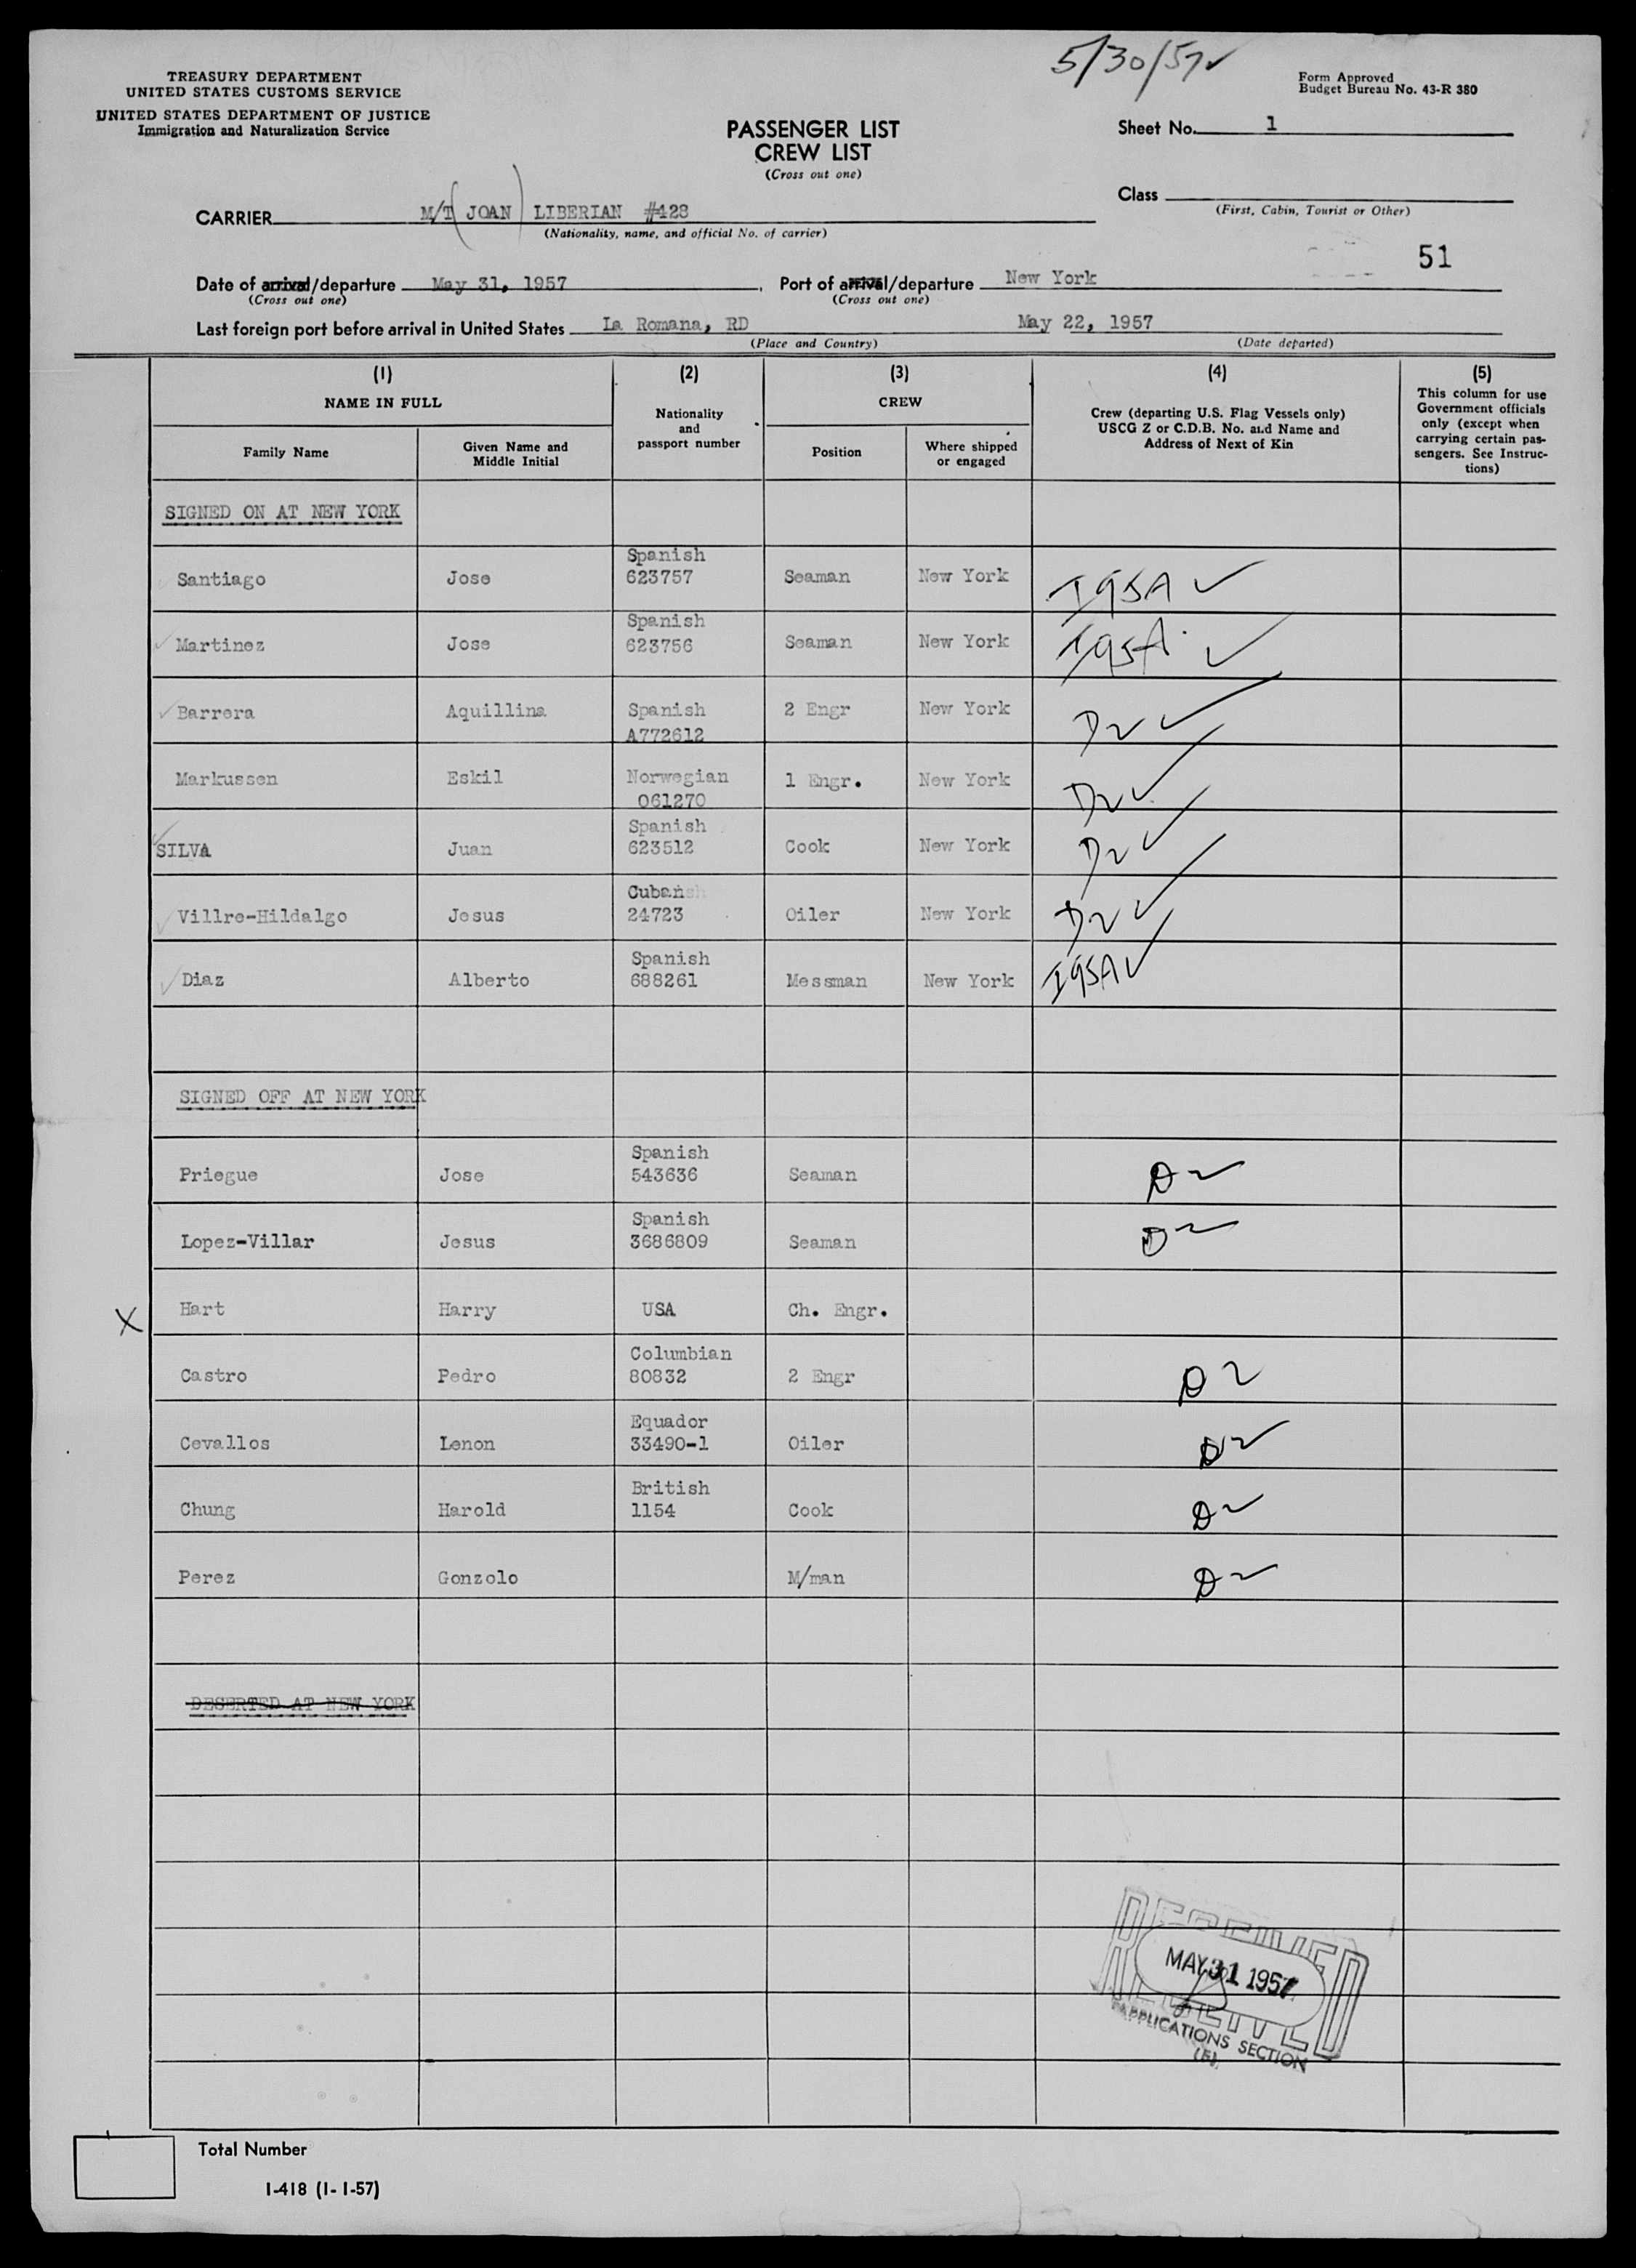 5/30/57
TREASURY DEPARTMENT
UNITED STATES CUSTOMS SERVICE
UNITED STATES DEPARTMENT OF JUSTICE
Immigration and Naturalization Service
Form Approved
Budget Bureau No. 43-R 380
PASSENGER LIST
CREW LIST
(Cross out one)
Sheet No. 1
Class
(First, Cabin, Tourist or Other)
CARRIER M/T (JOAN) LIBERIAN #428
(Nationality, name, and official No. of carrier)
51
Date of arrival/departure May 31, 1957
(Cross out one)
Port of arrival/departure New York
(Cross out one)
Last foreign port before arrival in United States La Romana, RD May 22, 1957
(Place and Country) (Date departed)
(1) (2) (3) (4) (5)
NAME IN FULL
Family Name
Given Name and
Middle Initial
Nationality
and
passport number
CREW
Position
Where shipped
or engaged
Crew (departing U.S. Flag Vessels only)
USCG Z or C.D.B. No. and Name and
Address of Next of Kin
This column for use
Government officials
only (except when
carrying certain pas-
sengers. See Instruc-
tions)
SIGNED ON AT NEW YORK
Spanish
Santiago Jose 623757 Seaman New York I95A ✓
Spanish
✓ Martinez Jose 623756 Seaman New York I95A ✓
✓ Barrera Aquillina Spanish 2 Engr New York D2 ✓
A772612
Markussen Eskil Norwegian 1 Engr. New York D2 ✓
061270
Spanish
✓ SILVA Juan 623512 Cook New York D2 ✓
Cuban
✓ Villre-Hildalgo Jesus 24723 Oiler New York D2 ✓
Spanish
✓ Diaz Alberto 688261 Messman New York I95A ✓
SIGNED OFF AT NEW YORK
Spanish
Priegue Jose 543636 Seaman D2
Spanish
Lopez-Villar Jesus 3686809 Seaman D2
X Hart Harry USA Ch. Engr.
Columbian
Castro Pedro 80832 2 Engr D2
Equador
Cevallos Lenon 33490-1 Oiler D2
British
Chung Harold 1154 Cook D2
Perez Gonzolo M/man D2
DESERTED AT NEW YORK
RECEIVED
MAY 31 1957
RECEIVED
APPLICATIONS SECTION
Total Number
I-418 (1-1-57)